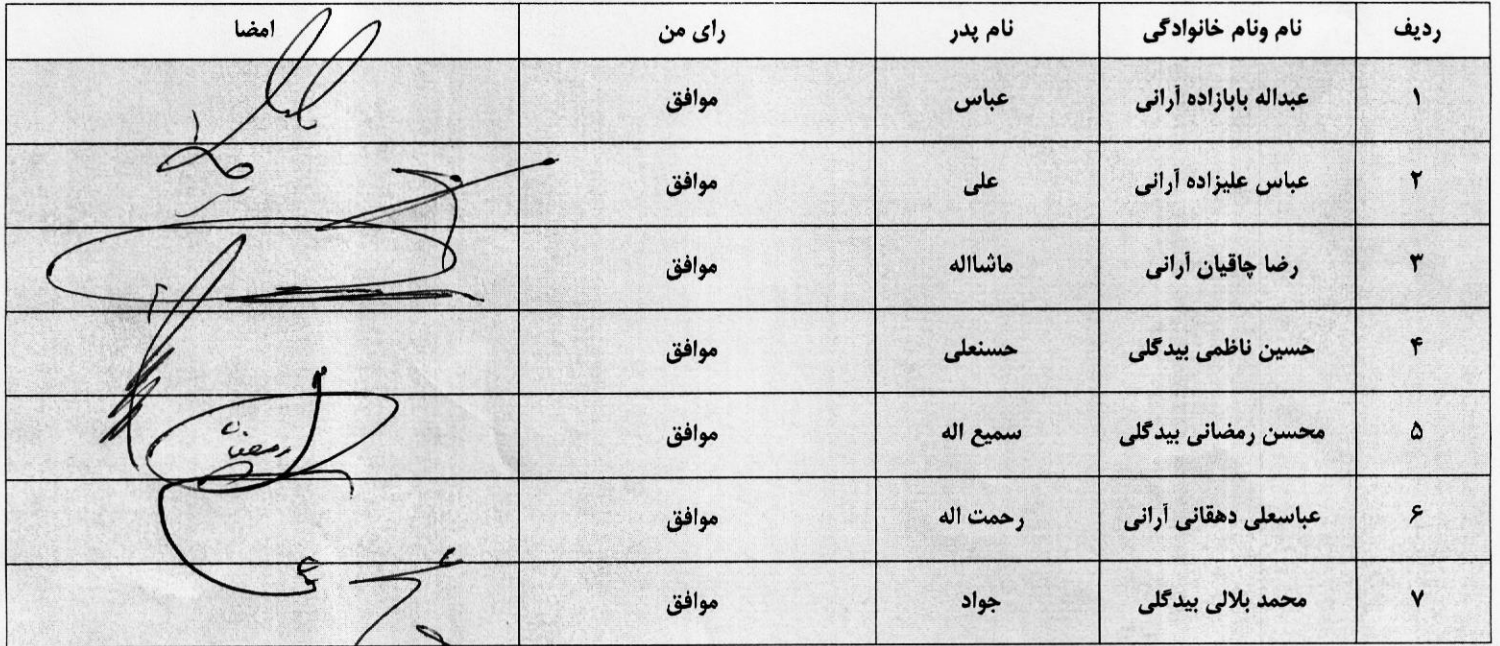 ردیف نام ونام خانوادگی نام پدر رای من امضا
۱ عبداله بابازاده آرانی عباس موافق
۲ عباس علیزاده آرانی علی موافق
۳ رضا چاقیان آرانی ماشااله موافق
۴ حسین ناظمی بیدگلی حسنعلی موافق
۵ محسن رمضانی بیدگلی سمیع اله موافق
۶ عباسعلی دهقانی آرانی رحمت اله موافق
۷ محمد بلالی بیدگلی جواد موافق